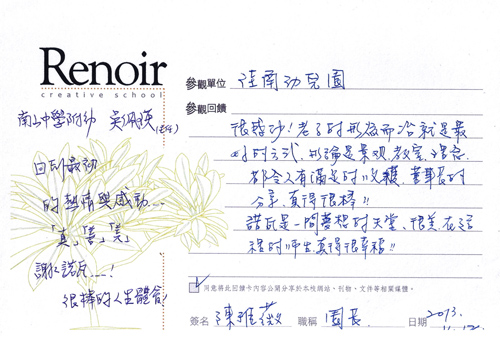 Renoir
creative school
南山中學附幼
回到最初
的熱情與感動...
「真」「善」「美」
謝謝諾瓦....!
很棒的人生體會!
參觀單位 佳南幼兒園
參觀回饋
很感妙!老子的無為而治就是最
好的方式,無論是景觀,教室,
都令人有滿足的收穫,董事長的
分享,真得很棒!!
諾瓦是一間夢想的天堂,很美,在這
裡的師生,真得很幸福!!
同意將此回饋卡內容公開分享於本校網站、刊物、文件等相關媒體。
簽名 陳雅薇 職稱 園長 日期 2013.